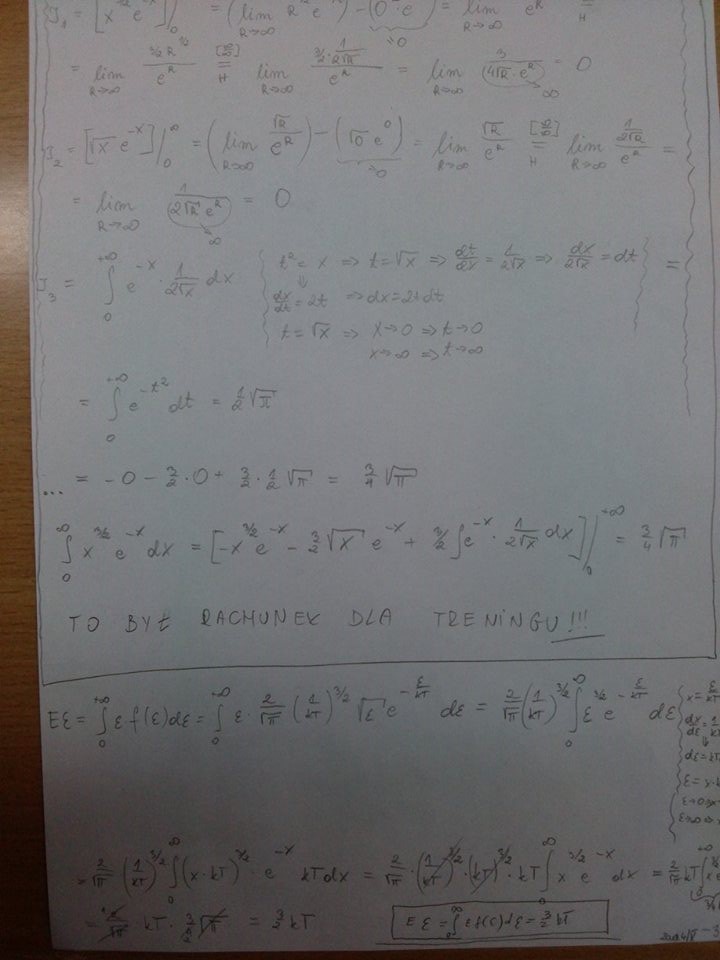 J₁ = [x e⁻ˣ]|₀ = (lim R→∞ R e) - (0 · e) = lim R→∞ eᴿ =ᴴ
=0
= lim R→∞ (3/2 R^½)/eᴿ =ᴴ [∞/∞] lim R→∞ (3/2 · 1/(2√R))/eᴿ = lim R→∞ 3/(4√R · eᴿ) = 0
∞
J₂ = [√x e⁻ˣ]|₀^∞ = (lim R→∞ √R/eᴿ) - (√0 e⁰) = lim R→∞ √R/eᴿ =ᴴ [∞/∞] lim R→∞ (1/(2√R))/eᴿ =
=0
= lim R→∞ 1/(2√R eᴿ) = 0
∞
J₃ = ∫₀^{+∞} e⁻ˣ · 1/(2√x) dx { t² = x ⇒ t = √x ⇒ dt/dx = 1/(2√x) ⇒ dx/(2√x) = dt } =
⇓
dx/dt = 2t ⇒ dx = 2t dt
t = √x ⇒ x→0 ⇒ t→0
x→∞ ⇒ t→∞
= ∫₀^{+∞} e^{-t²} dt = ½√π
... = -0 - 3/2 · 0 + 3/2 · 1/2 √π = 3/4 √π
∫₀^∞ x^{3/2} e⁻ˣ dx = [-x^{3/2} e⁻ˣ - 3/2 √x e⁻ˣ + 3/2 ∫ e⁻ˣ · 1/(2√x) dx]|₀^{+∞} = 3/4 √π
TO BYŁ RACHUNEK DLA TRENINGU!!!
Eε = ∫₀^{+∞} ε f(ε)dε = ∫₀^{+∞} ε · 2/√π (1/kT)^{3/2} √ε e^{-ε/kT} dε = 2/√π (1/kT)^{3/2} ∫₀^∞ ε^{3/2} e^{-ε/kT} dε
x = ε/kT
dx/dε = 1/kT
⇓
dε = kT
ε = x·k
ε→0
ε→∞
= 2/√π (1/kT)^{3/2} ∫₀^∞ (x·kT)^{3/2} · e⁻ˣ kT dx = 2/√π · (1/kT)^{3/2} · (kT)^{3/2} · kT ∫₀^∞ x^{3/2} e⁻ˣ dx = 2/√π kT
= 2/√π · kT · 3/4 √π = 3/2 kT
Eε = ∫₀^∞ εf(ε)dε = 3/2 kT